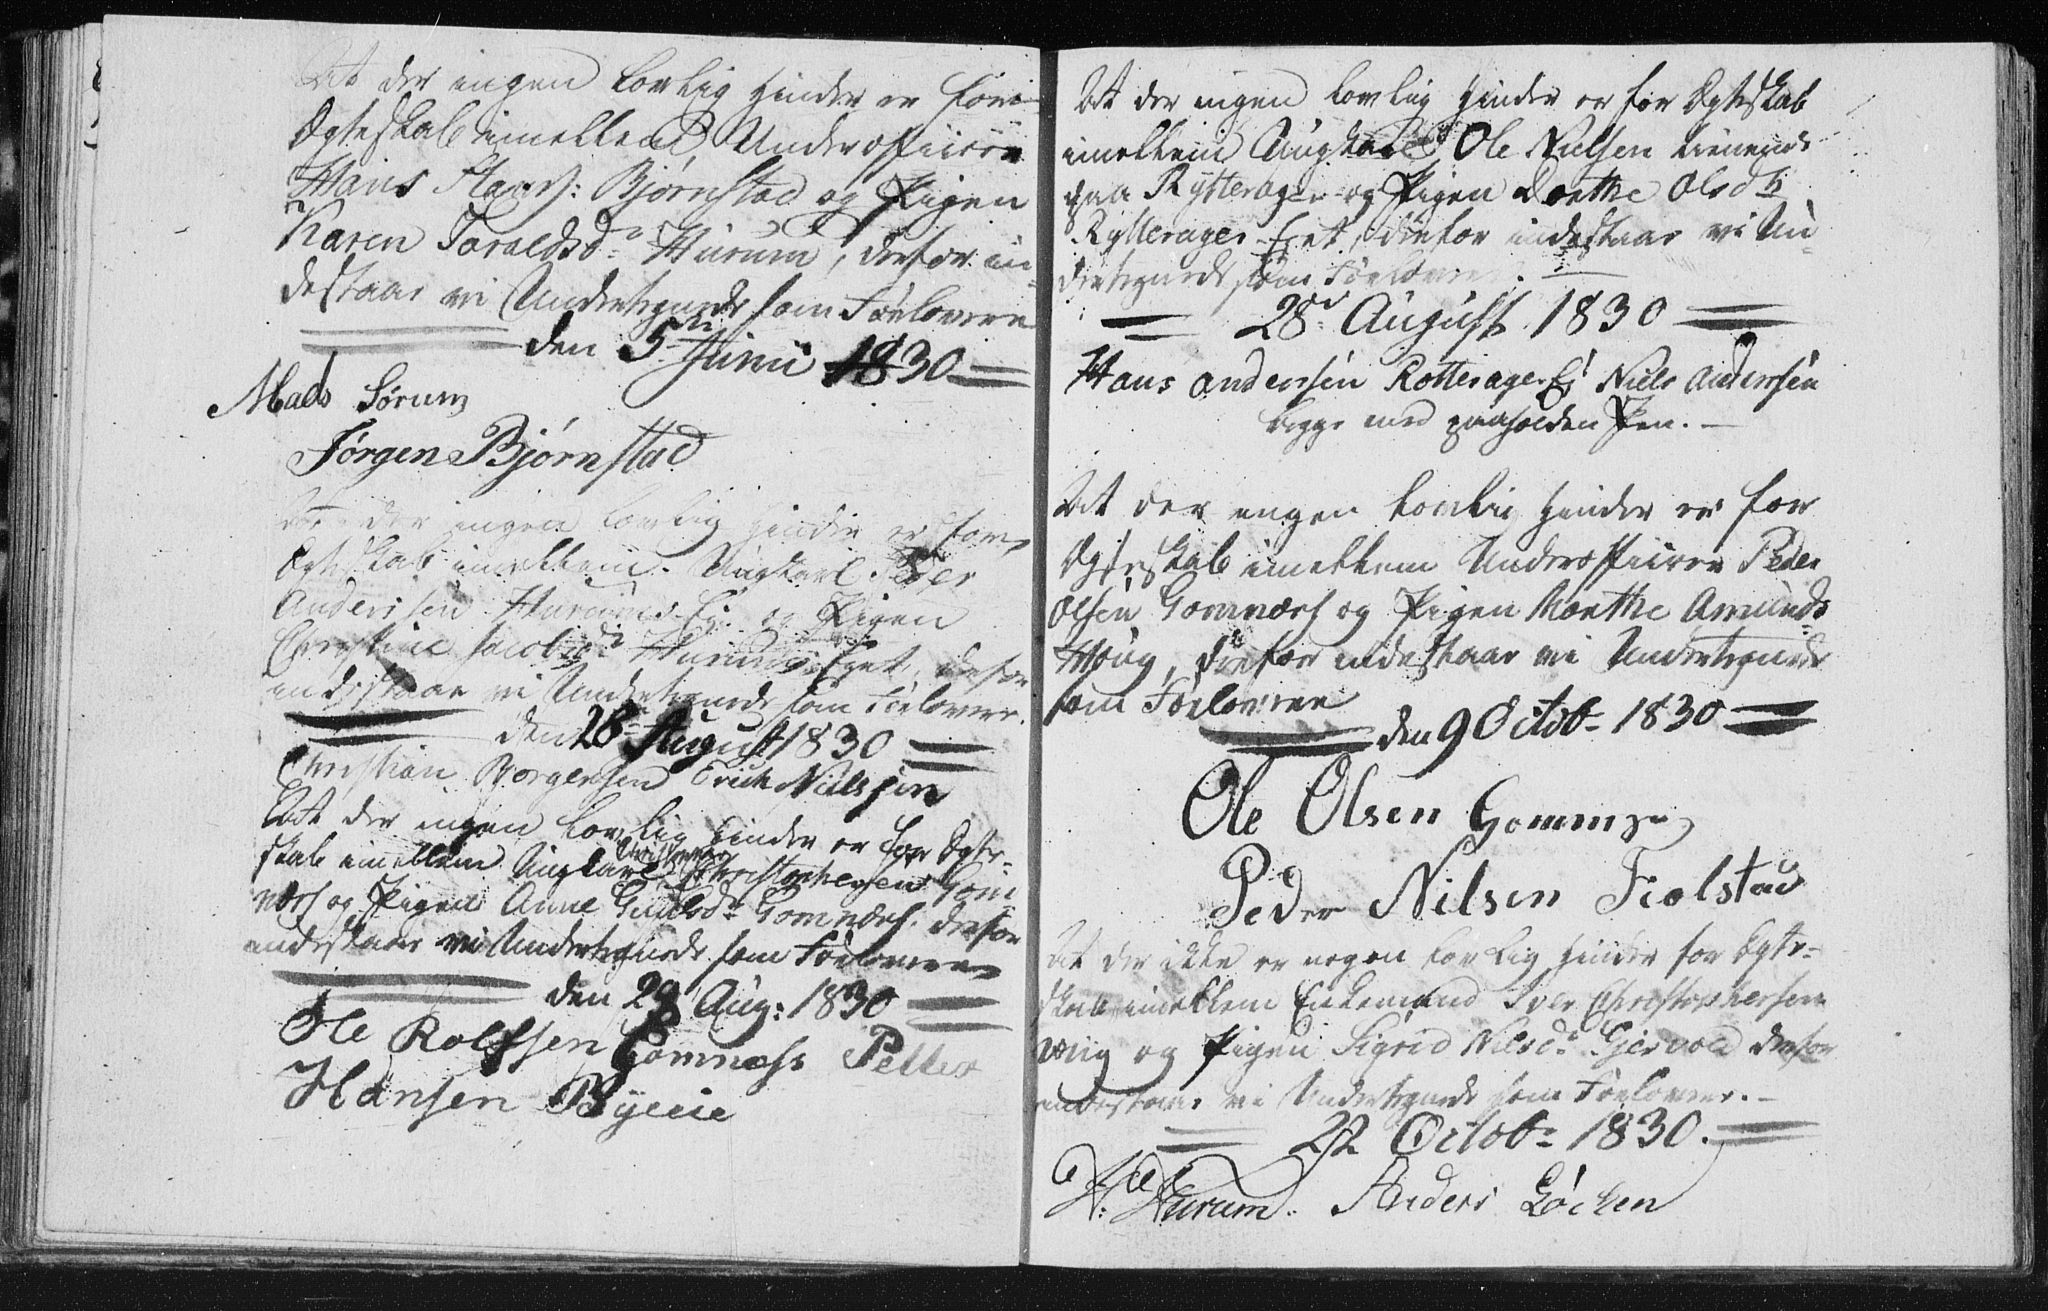 At der ingen lovlig Hinder er for
Ægteskab imellem Underofficeer
Hans Hanss: Bjørnstad og Pigen
Karen Taraldsdr Hurum, derfor in-
destaar vi Undertegnede som Forlovere
den 5te Junii 1830
Mads Sørum
Jørgen Bjørnstad
At der ingen lovlig Hinder er for
Ægteskab imellem Ungkarl Peder
Andersen Hurums Ej. og Pigen
Christine Jacobsdr Hurums Eget, derfor
indestaar vi Undertegnede som Forlovere.
den 28 August 1830
Christian Borgersen Erich Nielssen
At der ingen lovlig Hinder er for Ægte-
skab imellem Ungkarl Christopher Christophersen Gom
næss og Pigen Anne Gulbdr Gomnæss, derfor
indestaar vi Undertegnede som Forlovere
den 28 Aug: 1830
Ole Rolfsen Gomnæss Petter
Hansen Byeie
At der ingen lovlig Hinder er for Ægteskab
imellem Ungkarl Ole Nielsen tienende
paa Rytterager og Pigen Dorthe Olsdtr
Rytterager Eget, derfor indestaar vi Un
dertegnede som Forlovere.
28de August 1830
Hans Andersen Rotterager Ej Niels Andersen
begge med paaholden Pen.
At der ingen lovlig Hinder er for
Ægteskab imellem Underofficeer Peder
Olsen Gomnæss og Pigen Marthe Amunds
Houg, derfor indestaar vi Undertegnede
som Forlovere
den 9 Octobr 1830
Ole Olsen Gomnæs
Peder Nilsen Fiolstad
At der ikke er nogen lovlig Hinder for Ægte-
skab imellem Enkemand Iver Christophersen
og Pigen Sigrid Nilsdr Gjesvold derfor
indestaar vi Undertegnede som Forlovere.
22 Octobr 1830.
H: Hurum. Anders Løchen